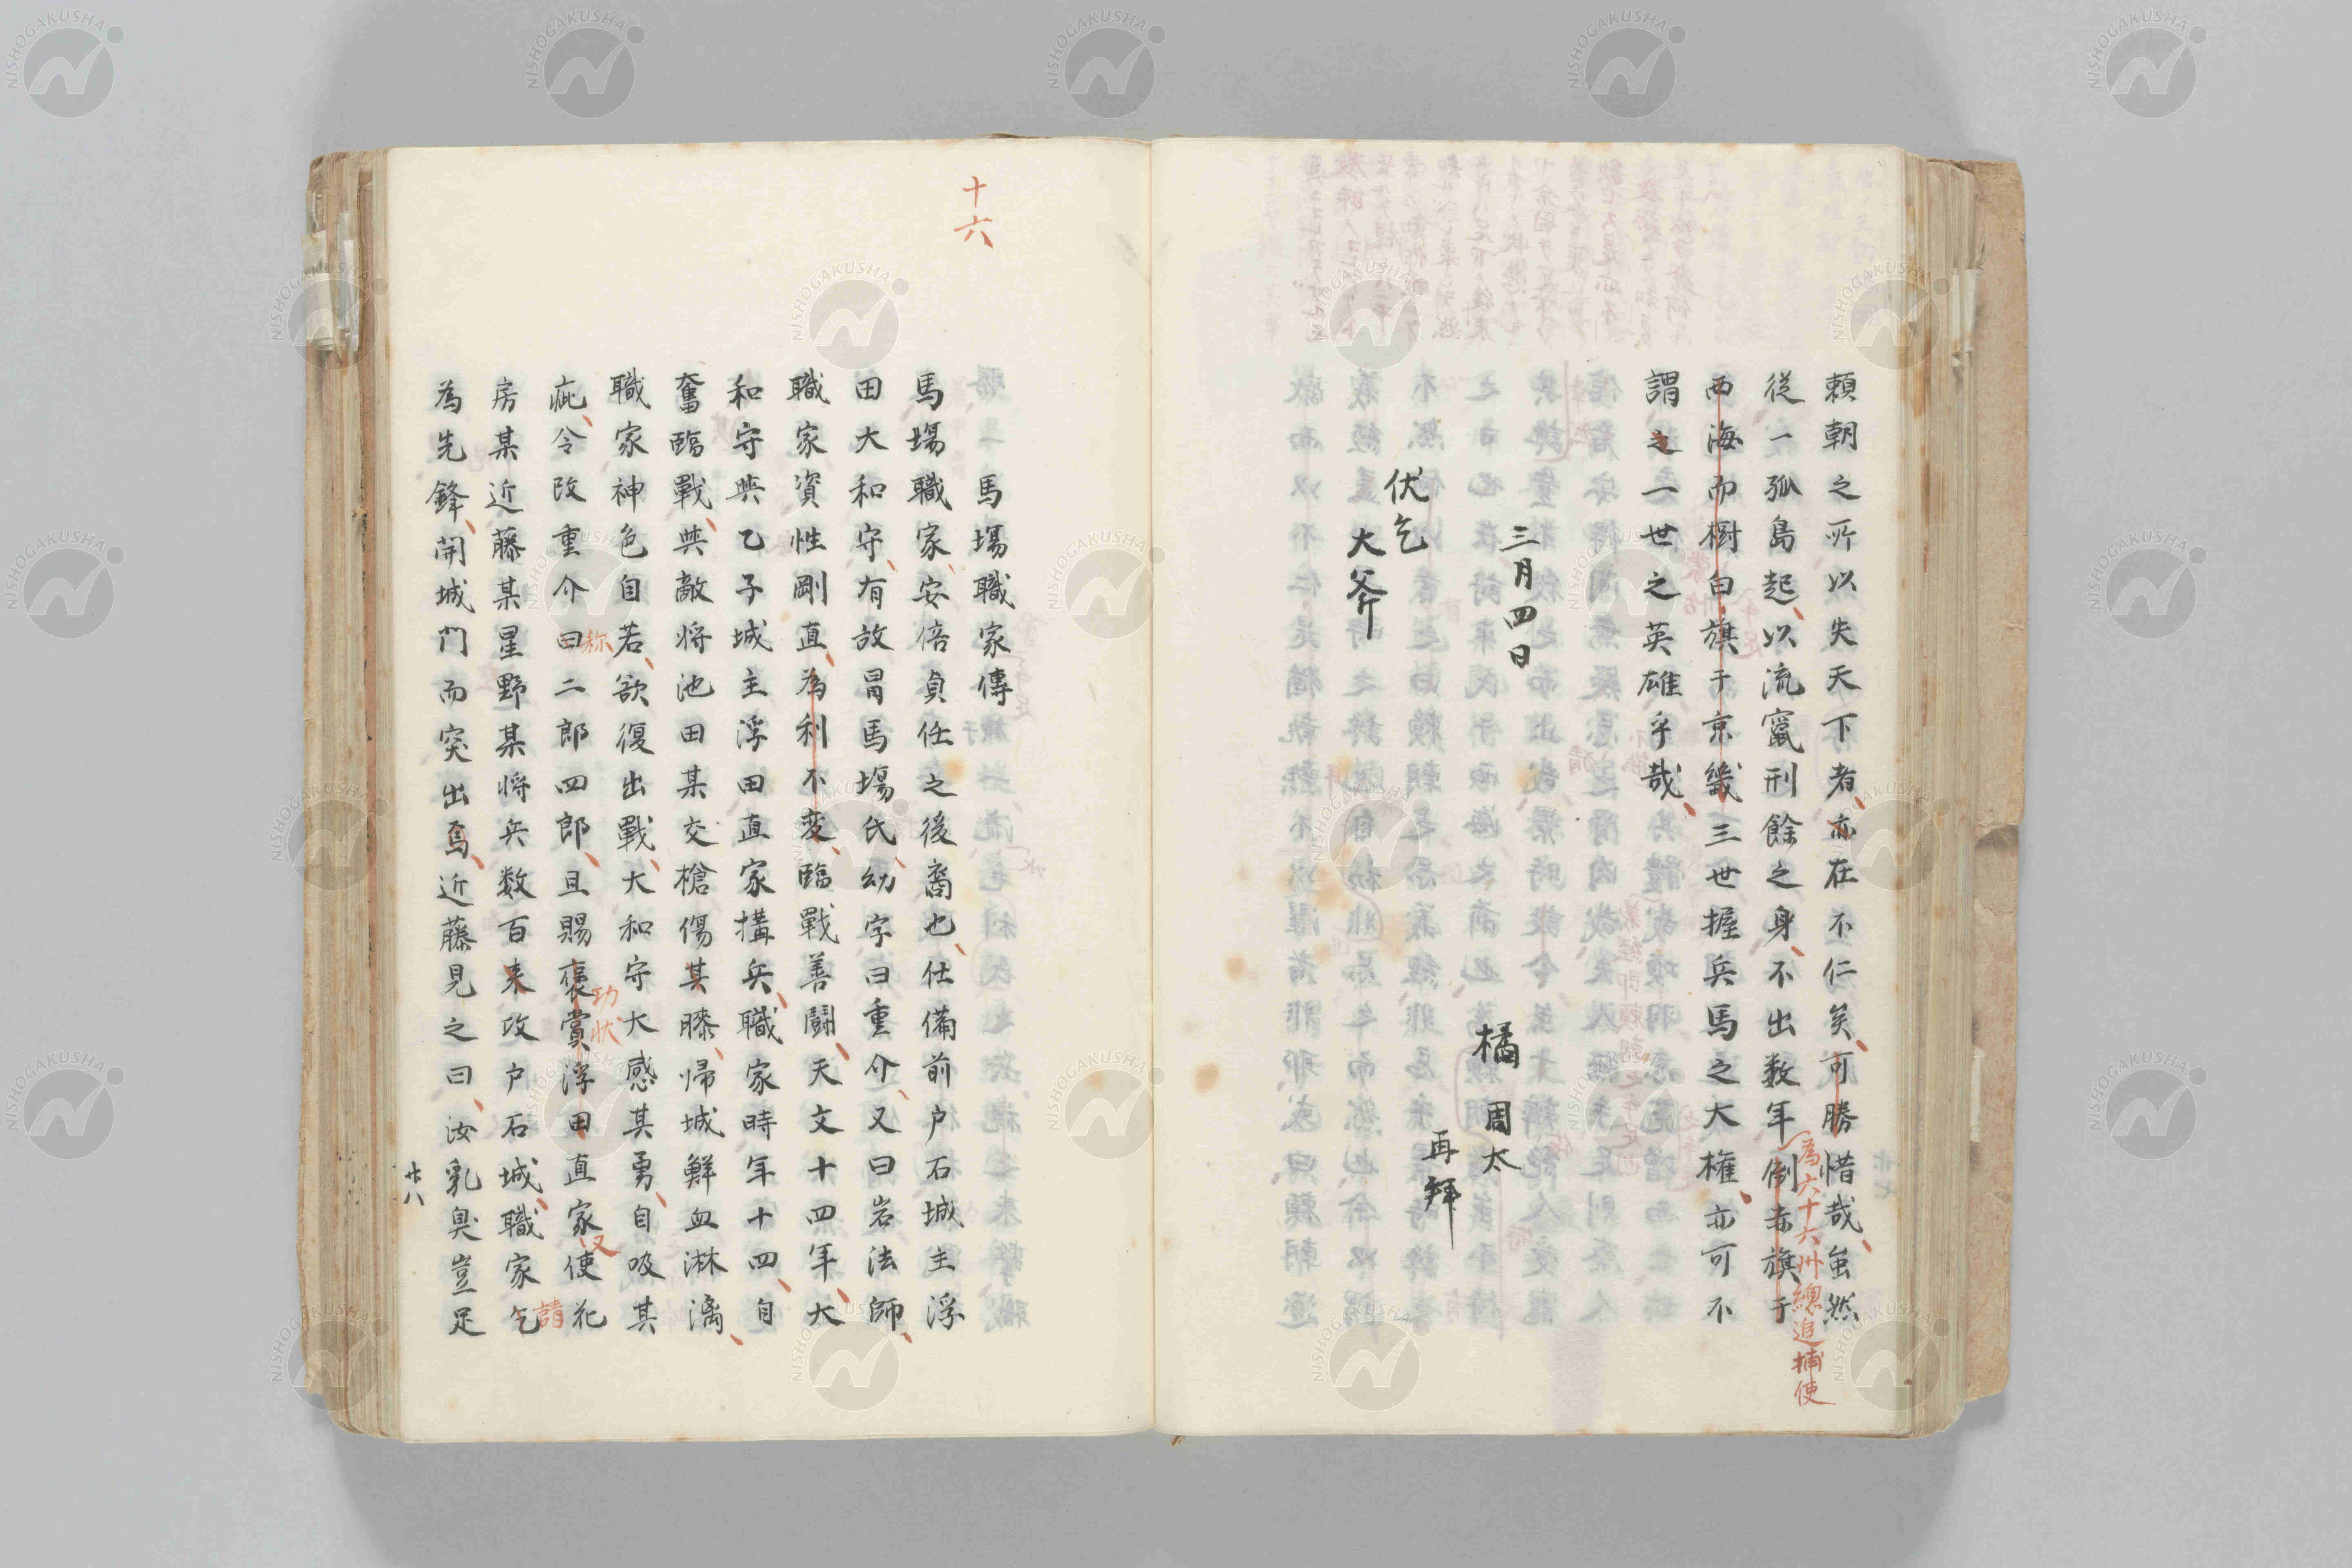 頼朝之所以失天下者亦在不仁矣可勝惜哉虽然
従一孤島起以流竄刑餘之身不出数年倒赤旗于
為六十六州總追捕使
西海而樹白旗于京畿三世握兵馬之大権亦可不
謂之一世之英雄乎哉
三月四日
橘周太
再拜
伏乞
大斧
十六
馬場職家傳
馬場職家安倍貞任之後裔也仕備前户石城主浮
田大和守有故冒馬場氏幼字曰重介又曰岩法師
職家資性剛直為利不変臨戰善鬪天文十四年大
和守與乙子城主浮田直家搆兵職家時年十四自
奮臨戰與敵将池田某交槍傷其膝帰城鮮血淋漓
職家神色自若欲復出戰大和守大感其勇自吸其
疵令改重介曰二郎四郎且賜褒賞浮田直家使花
称
功状
又
房某近藤某星野某将兵数百来攻户石城職家乞
請
為先鋒開城門而突出焉近藤見之曰汝乳臭豈足
廿八
NISHOGAKUSHA